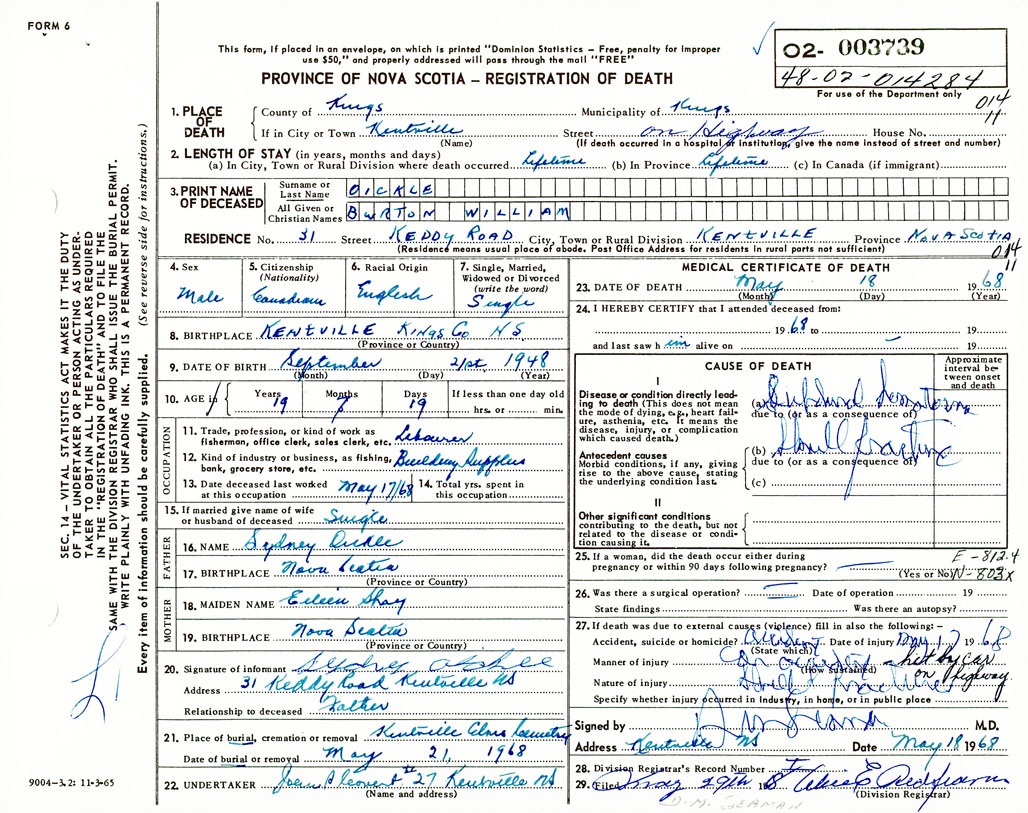 FORM 6
This form, if placed in an envelope, on which is printed "Dominion Statistics – Free, penalty for improper
use $50," and properly addressed will pass through the mail "FREE"
PROVINCE OF NOVA SCOTIA – REGISTRATION OF DEATH
O2- 003739
48-02-014284
For use of the Department only
014
11
1. PLACE OF DEATH
County of Kings Municipality of Kings
If in City or Town Kentville Street on Highway House No.
(Name) (If death occurred in a hospital or institution, give the name instead of street and number)
2. LENGTH OF STAY (in years, months and days)
(a) In City, Town or Rural Division where death occurred Lifetime (b) In Province Lifetime (c) In Canada (if immigrant)
3. PRINT NAME OF DECEASED
Surname or Last Name OICKLE
All Given or Christian Names BURTON WILLIAM
RESIDENCE No. 31 Street KEDDY ROAD City, Town or Rural Division KENTVILLE Province NOVA SCOTIA
(Residence means usual place of abode. Post Office Address for residents in rural parts not sufficient)
014
11
4. Sex
Male
5. Citizenship
(Nationality)
Canadian
6. Racial Origin
English
7. Single, Married,
Widowed or Divorced
(write the word)
Single
8. BIRTHPLACE KENTVILLE KINGS Co N.S.
(Province or Country)
9. DATE OF BIRTH September 21st 1948
(Month) (Day) (Year)
10. AGE in Years Months Days If less than one day old
19 7 19 hrs. or min.
OCCUPATION
11. Trade, profession, or kind of work as
fisherman, office clerk, sales clerk, etc. Labourer
12. Kind of industry or business, as fishing,
bank, grocery store, etc. Building Supplies
13. Date deceased last worked
at this occupation May 17/68
14. Total yrs. spent in
this occupation
15. If married give name of wife
or husband of deceased Single
FATHER
16. NAME Sydney Oickle
17. BIRTHPLACE Nova Scotia
(Province or Country)
MOTHER
18. MAIDEN NAME Eileen Shay
19. BIRTHPLACE Nova Scotia
(Province or Country)
20. Signature of informant Sydney Oickle
Address 31 Keddy Road Kentville NS
Relationship to deceased Father
21. Place of burial, cremation or removal Kentville Elms Cemetery
Date of burial or removal May 21, 1968
22. UNDERTAKER 27 Kentville NS
(Name and address)
MEDICAL CERTIFICATE OF DEATH
23. DATE OF DEATH May 18 1968
(Month) (Day) (Year)
24. I HEREBY CERTIFY that I attended deceased from:
1968 to 19
and last saw him alive on 19
CAUSE OF DEATH
Approximate
interval be-
tween onset
and death
I
Disease or condition directly lead-
ing to death (This does not mean
the mode of dying, e.g., heart fail-
ure, asthenia, etc. It means the
disease, injury, or complication
which caused death.)
(a) Subdural Hematoma
due to (or as a consequence of)
Antecedent causes
Morbid conditions, if any, giving
rise to the above cause, stating
the underlying condition last.
(b) Skull fracture
due to (or as a consequence of)
(c)
II
Other significant conditions
contributing to the death, but not
related to the disease or condi-
tion causing it.
25. If a woman, did the death occur either during
pregnancy or within 90 days following pregnancy?
(Yes or No)
E-812.4
N-803X
26. Was there a surgical operation? Date of operation 19
State findings Was there an autopsy?
27. If death was due to external causes (violence) fill in also the following: –
Accident, suicide or homicide? Accident Date of injury May 17 1968
(State which)
Manner of injury Car accident - hit by car
(How sustained) on highway
Nature of injury Skull fracture
Specify whether injury occurred in industry, in home, or in public place
Signed by M.D.
Address Kentville NS Date May 18 1968
28. Division Registrar's Record Number
29. Filed May 29th 1968
(Division Registrar)
D.M. GERMAN
SEC. 14 – VITAL STATISTICS ACT MAKES IT THE DUTY
OF THE UNDERTAKER OR PERSON ACTING AS UNDER-
TAKER TO OBTAIN ALL THE PARTICULARS REQUIRED
IN THE "REGISTRATION OF DEATH" AND TO FILE THE
SAME WITH THE DIVISION REGISTRAR WHO SHALL ISSUE THE BURIAL PERMIT.
WRITE PLAINLY WITH UNFADING INK. THIS IS A PERMANENT RECORD.
Every item of information should be carefully supplied. (See reverse side for instructions.)
9004–3.2: 11-3-65